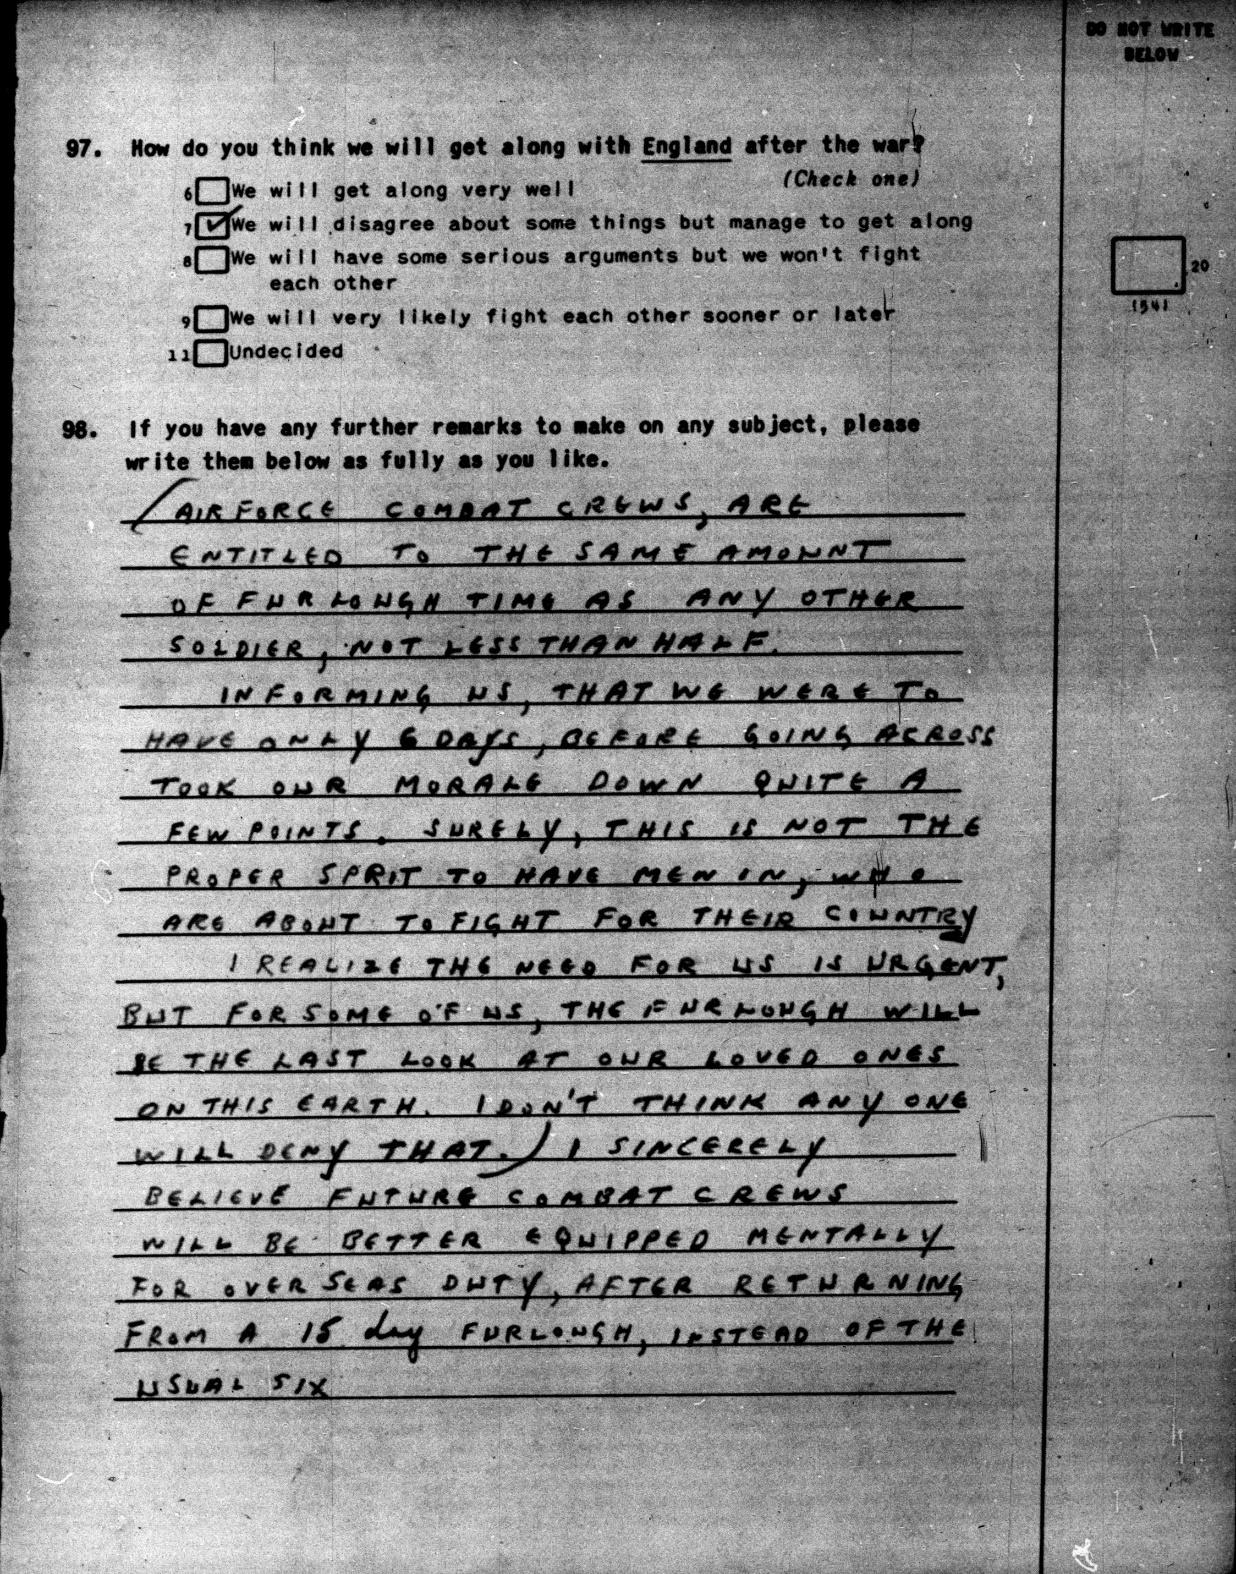 DO NOT WRITE
BELOW
97. How do you think we will get along with England after the war?
(Check one)
6 We will get along very well
7 ✓ We will disagree about some things but manage to get along
8 We will have some serious arguments but we won't fight
each other
9 We will very likely fight each other sooner or later
11 Undecided
20
(54)
98. If you have any further remarks to make on any subject, please
write them below as fully as you like.
(AIR FORCE COMBAT CREWS, ARE
ENTITLED TO THE SAME AMOUNT
OF FURLOUGH TIME AS ANY OTHER
SOLDIER, NOT LESS THAN HALF.
INFORMING US, THAT WE WERE TO
HAVE ONLY 6 DAYS, BEFORE GOING ACROSS
TOOK OUR MORALE DOWN QUITE A
FEW POINTS. SURELY, THIS IS NOT THE
PROPER SPRIT TO HAVE MEN IN, WHO
ARE ABOUT TO FIGHT FOR THEIR COUNTRY
I REALIZE THE NEED FOR US IS URGENT,
BUT FOR SOME OF US, THE FURLOUGH WILL
BE THE LAST LOOK AT OUR LOVED ONES
ON THIS EARTH. I DON'T THINK ANY ONE
WILL DENY THAT.) I SINCERELY
BELIEVE FUTURE COMBAT CREWS
WILL BE BETTER EQUIPPED MENTALLY
FOR OVER SEAS DUTY, AFTER RETURNING
FROM A 15 day FURLOUGH, INSTEAD OF THE
USUAL SIX